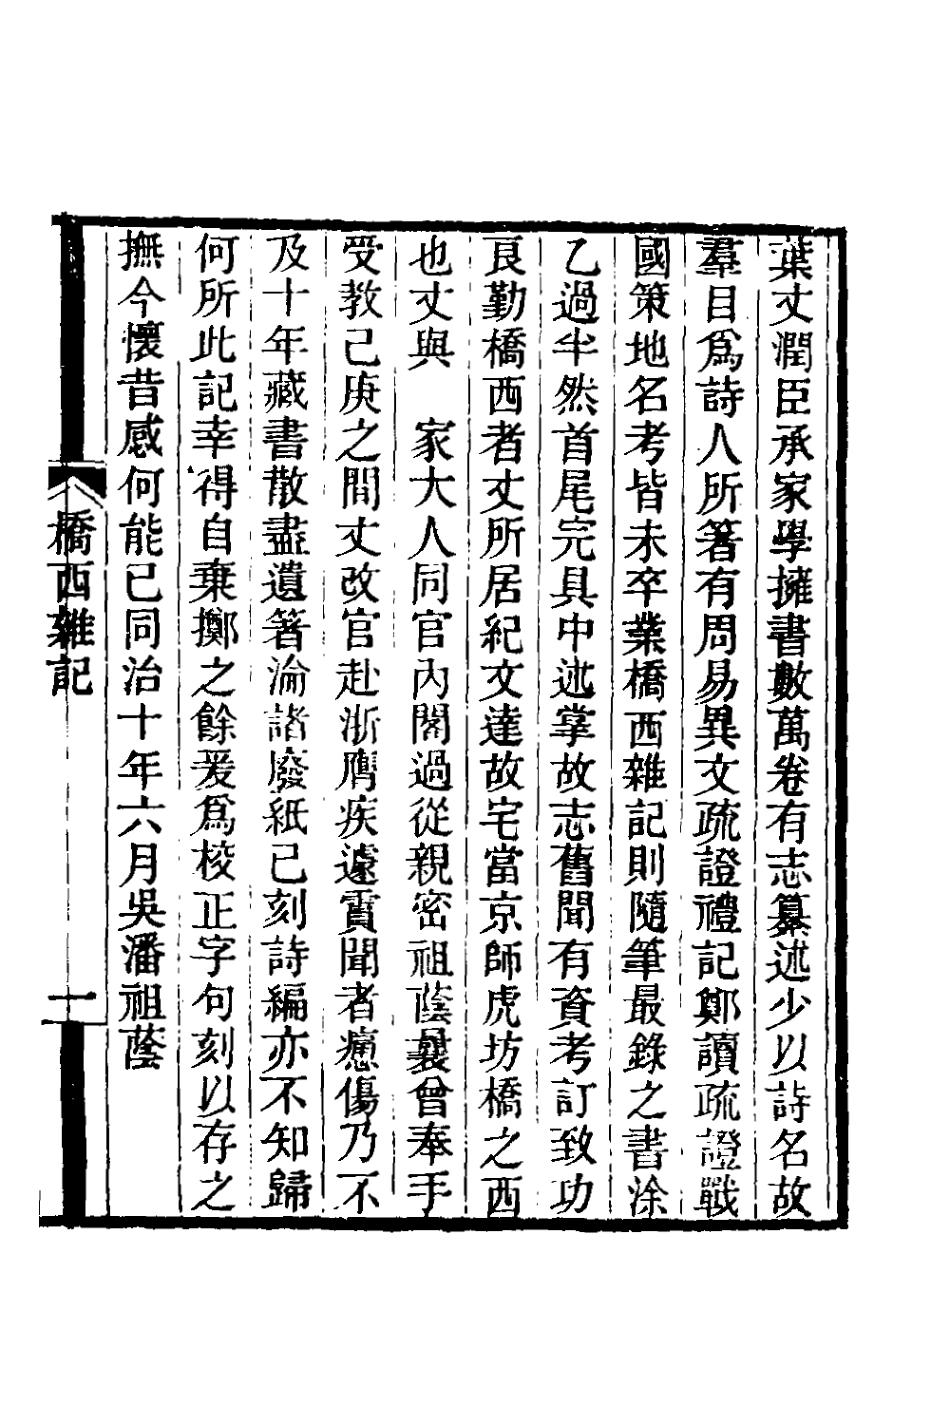 葉丈潤臣承家學擁書數萬卷有志纂述少以詩名故
羣目爲詩人所箸有周易異文疏證禮記鄭讀疏證戰
國策地名考皆未卒業橋西雜記則隨筆最錄之書涂
乙過半然首尾完具中述掌故志舊聞有資考訂致功
良勤橋西者丈所居紀文達故宅當京師虎坊橋之西
也丈與　家大人同官內閣過從親密祖蔭曩曾奉手
受教己庚之間丈改官赴浙膺疾遽霣聞者瘛傷乃不
及十年藏書散盡遺箸淪諸廢紙已刻詩編亦不知歸
何所此記幸得自棄擲之餘爰爲校正字句刻以存之
撫今懷昔感何能已同治十年六月吳潘祖蔭
橋西雜記
一